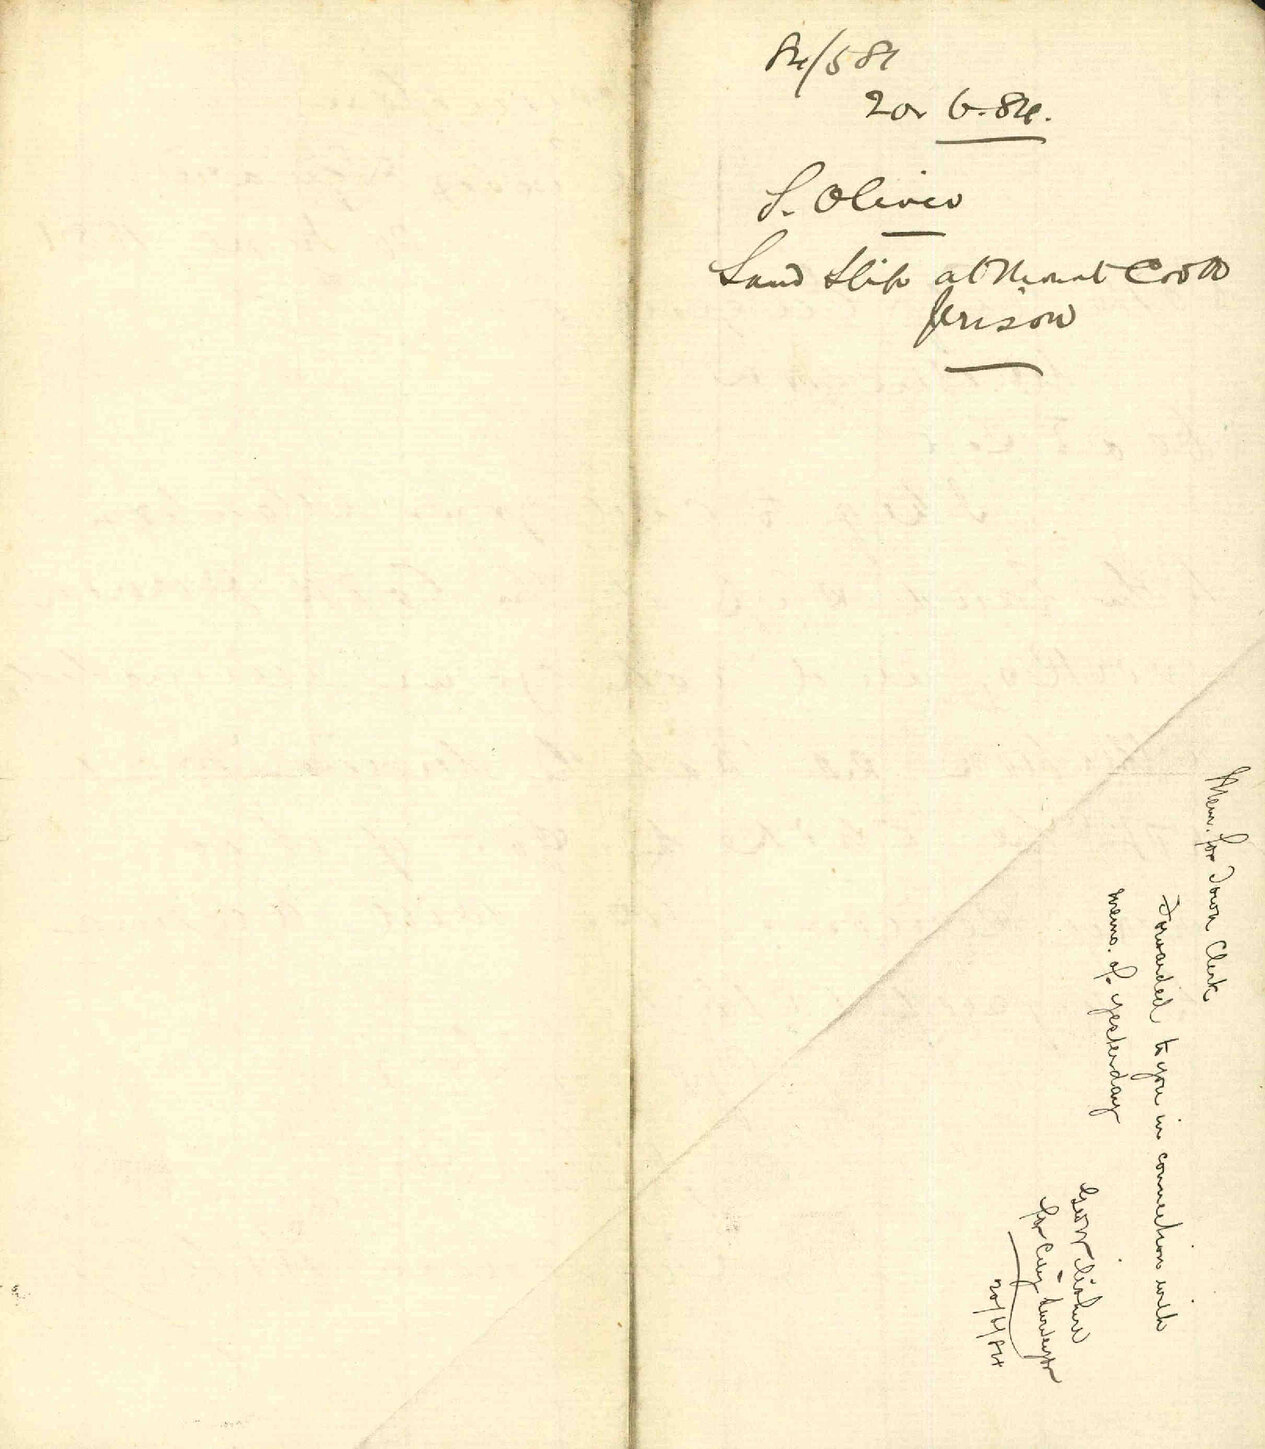 84/581
20. 6. 84.
S. Oliver
Land Slip at Mount Cook
Prison
Mem. for Town Clerk
Forwarded to you in connection with
memo. of yesterday
for City Surveyor
20/6/84